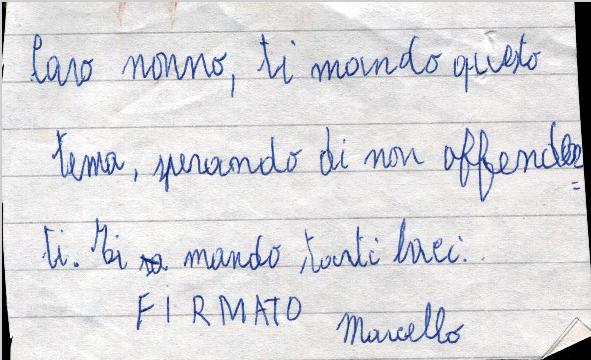 Caro nonno, ti mando questo
tema, sperando di non offender=
ti. Ti mando tanti baci.
FIRMATO Marcello